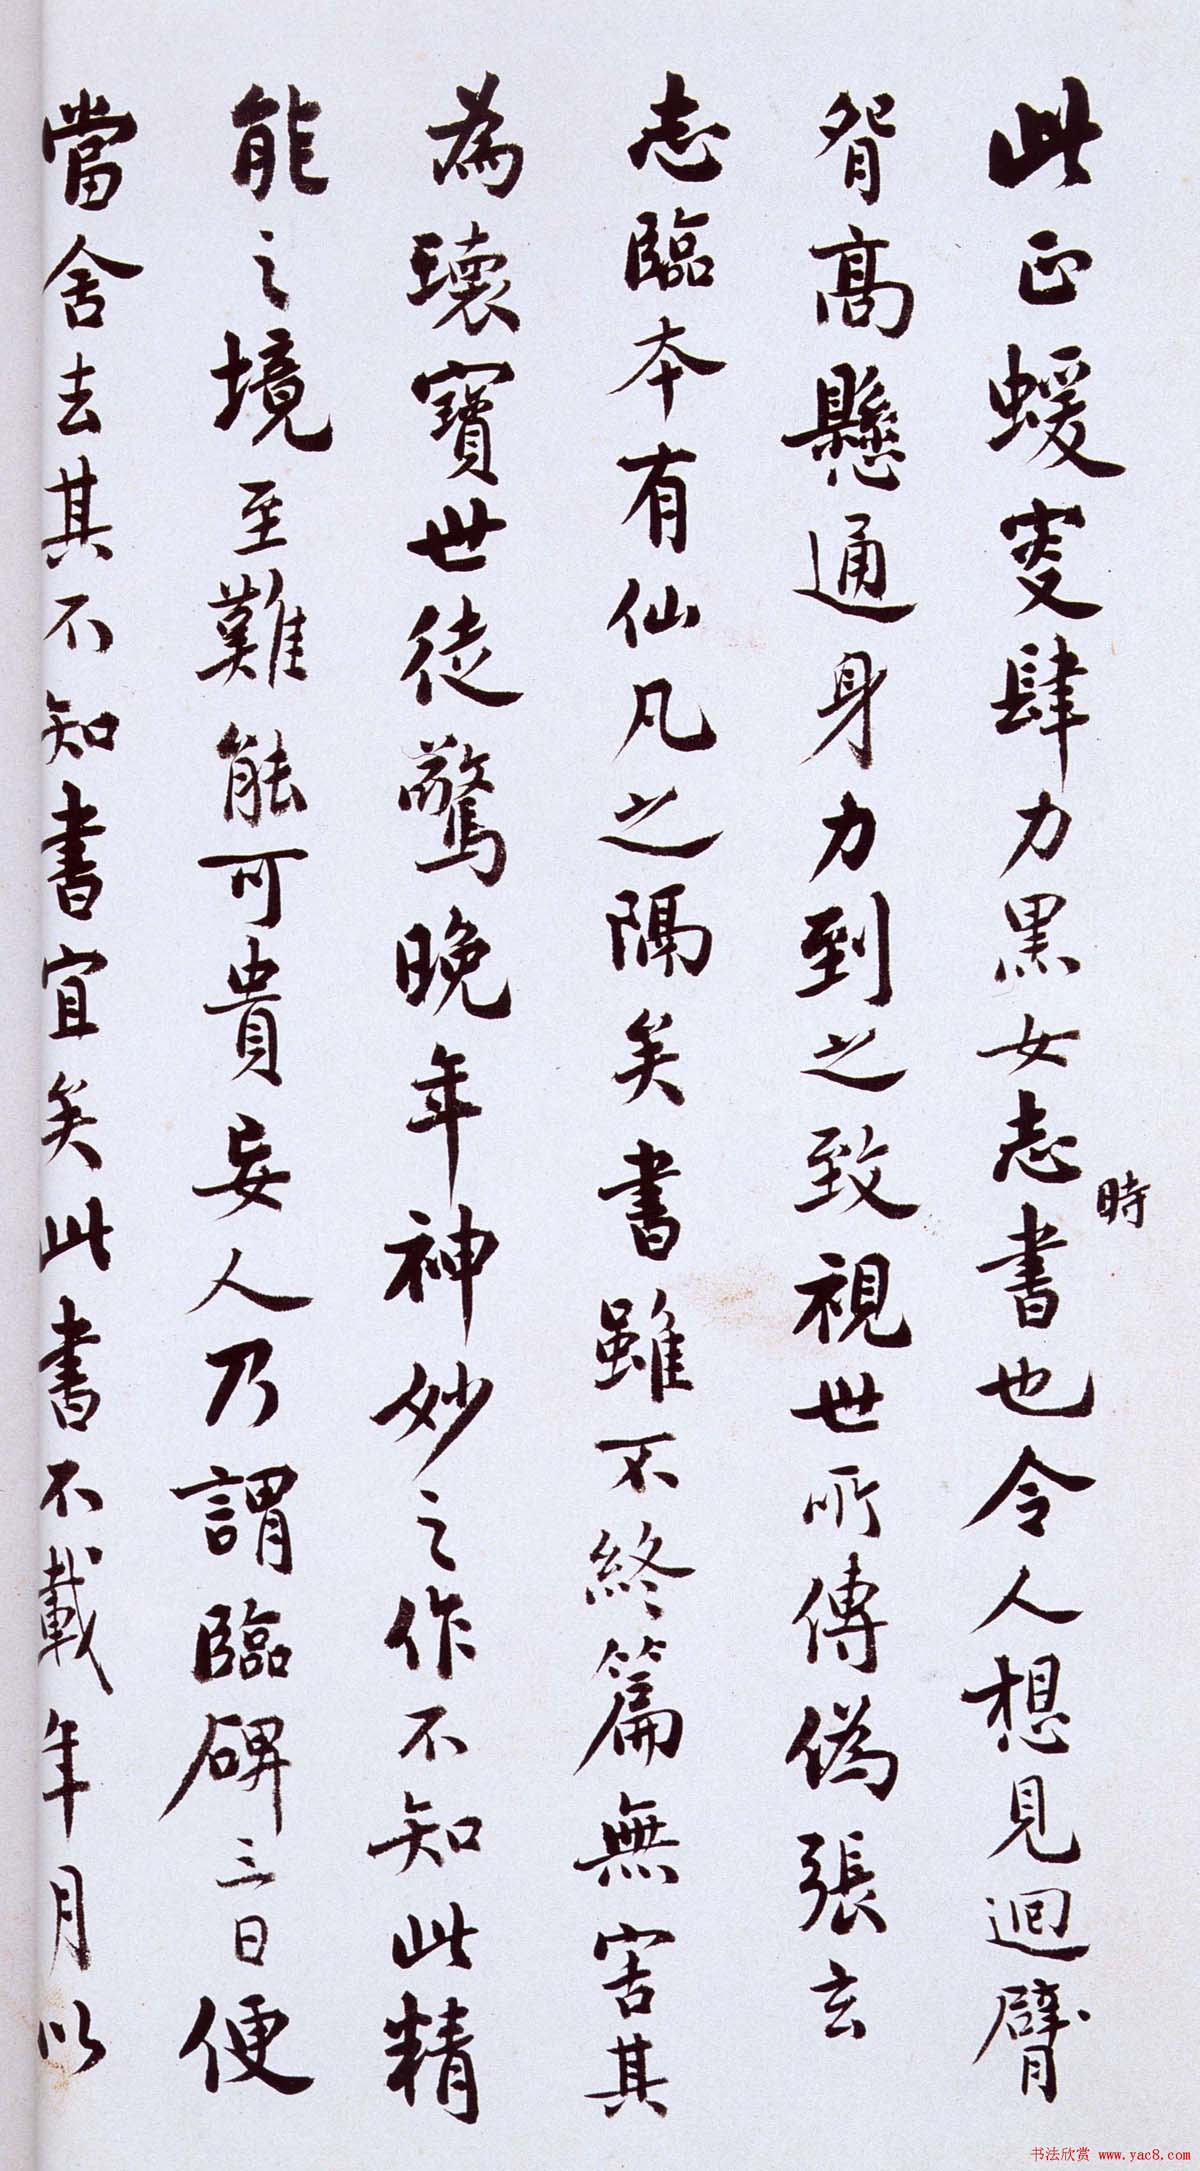 此正蝯叟肆力黑女志時書也令人想見迴臂
胷高懸通身力到之致視世所傳偽張玄
志臨本有仙凡之隔矣書雖不終篇無害其
為瓌寶世徒驚晚年神妙之作不知此精
能之境至難能可貴妄人乃謂臨碑三日便
當舍去其不知書宜矣此書不載年月以
书法欣赏 www.yac8.com